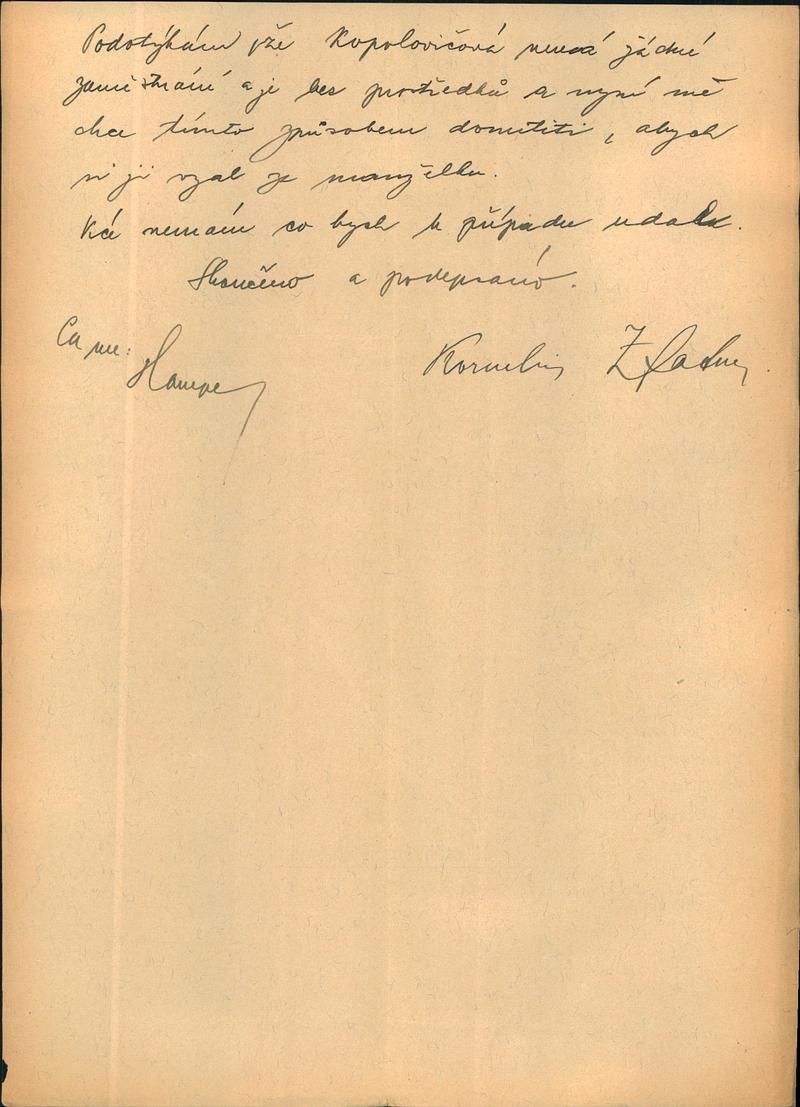 Podotýkám že Kopolovičová nemá žádné
zaměstnání a je bez prostředků a nyní mě
chce tímto způsobem donutiti, abych
si ji vzal za manželku.
nemám co bych k případu udal.
Skončeno a podepsáno.
Hampe